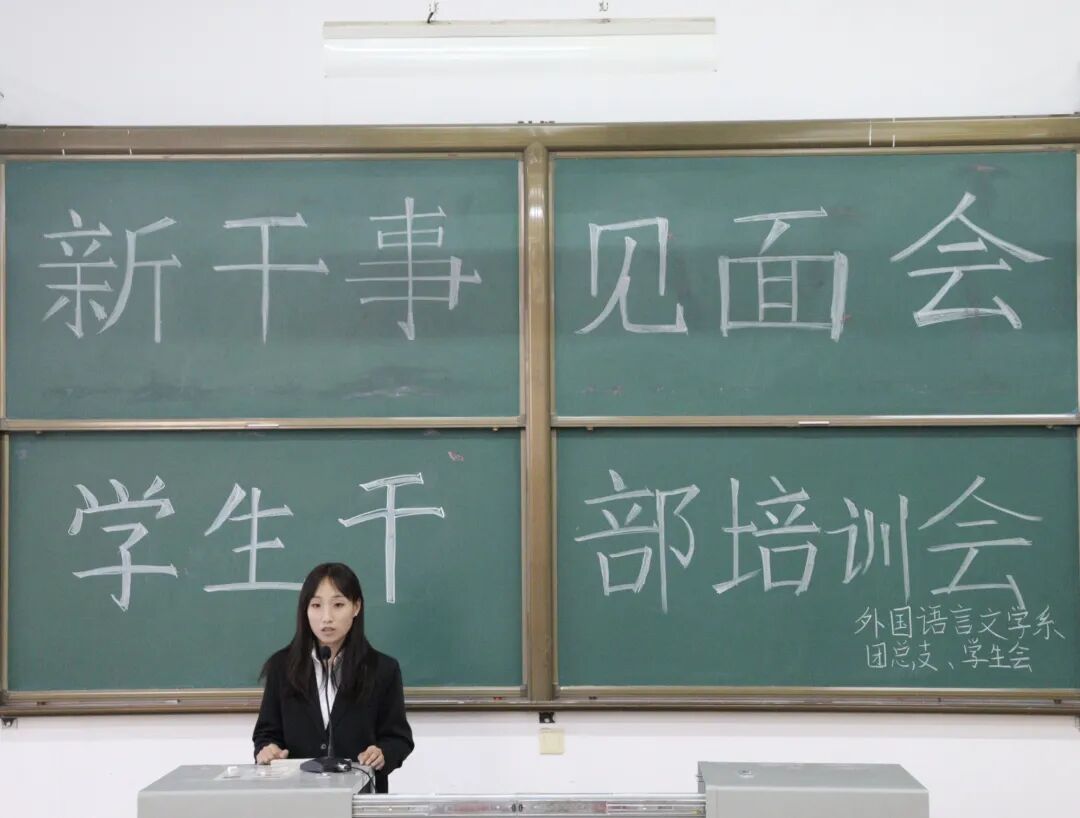 新干事见面会
学生干部培训会
外国语言文学系
团总支、学生会